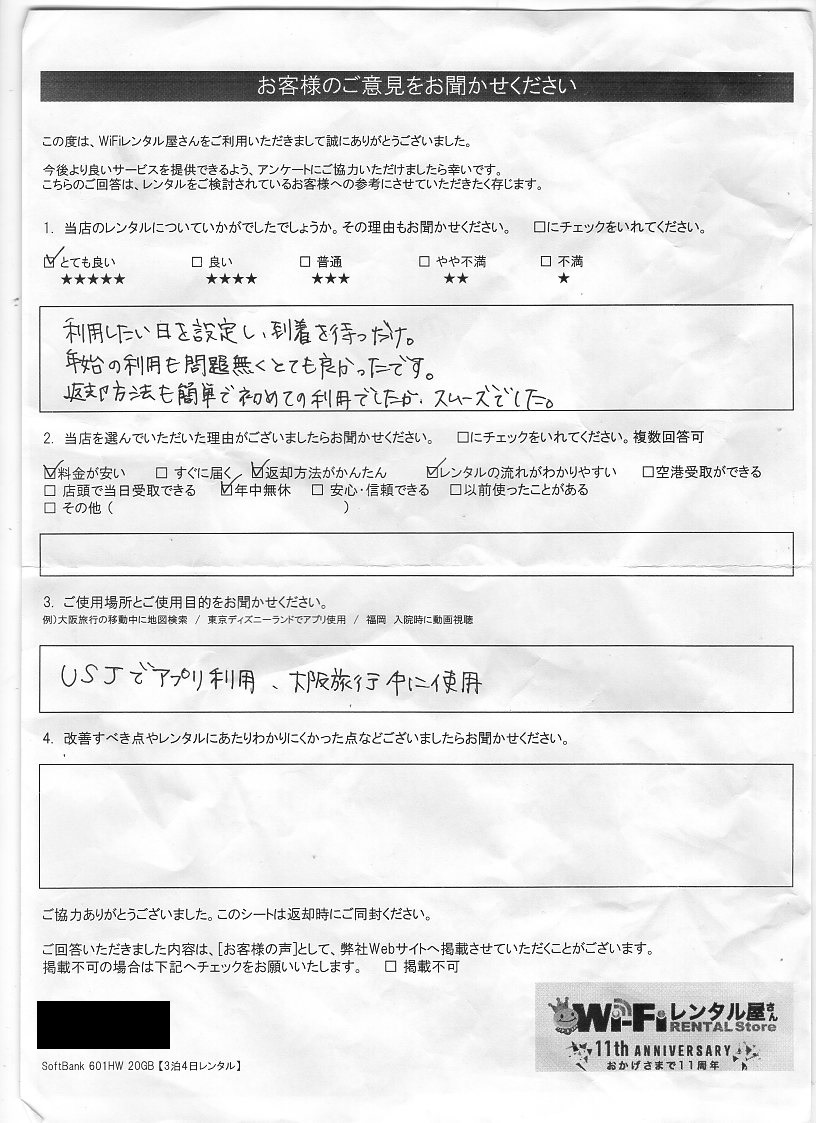 お客様のご意見をお聞かせください
この度は、WiFiレンタル屋さんをご利用いただきまして誠にありがとうございました。
今後より良いサービスを提供できるよう、アンケートにご協力いただけましたら幸いです。
こちらのご回答は、レンタルをご検討されているお客様への参考にさせていただきたく存じます。
1. 当店のレンタルについていかがでしたでしょうか。その理由もお聞かせください。 □にチェックをいれてください。
☑ とても良い □ 良い □ 普通 □ やや不満 □ 不満
★★★★★ ★★★★ ★★★ ★★ ★
利用したい日を設定し、到着を待つだけ。
年始の利用も問題無くとても良かったです。
返却方法も簡単で初めての利用でしたが、スムーズでした。
2. 当店を選んでいただいた理由がございましたらお聞かせください。 □にチェックをいれてください。複数回答可
☑料金が安い □ すぐに届く ☑返却方法がかんたん ☑レンタルの流れがわかりやすい □空港受取ができる
□ 店頭で当日受取できる ☑年中無休 □ 安心・信頼できる □以前使ったことがある
□ その他 ( )
3. ご使用場所とご使用目的をお聞かせください。
例)大阪旅行の移動中に地図検索 / 東京ディズニーランドでアプリ使用 / 福岡 入院時に動画視聴
USJでアプリ利用、大阪旅行中に使用
4. 改善すべき点やレンタルにあたりわかりにくかった点などございましたらお聞かせください。
ご協力ありがとうございました。このシートは返却時にご同封ください。
ご回答いただきました内容は、[お客様の声]として、弊社Webサイトへ掲載させていただくことがございます。
掲載不可の場合は下記へチェックをお願いいたします。 □ 掲載不可
Wi-Fiレンタル屋さん
RENTAL Store
11th ANNIVERSARY
おかげさまで11周年
SoftBank 601HW 20GB【3泊4日レンタル】